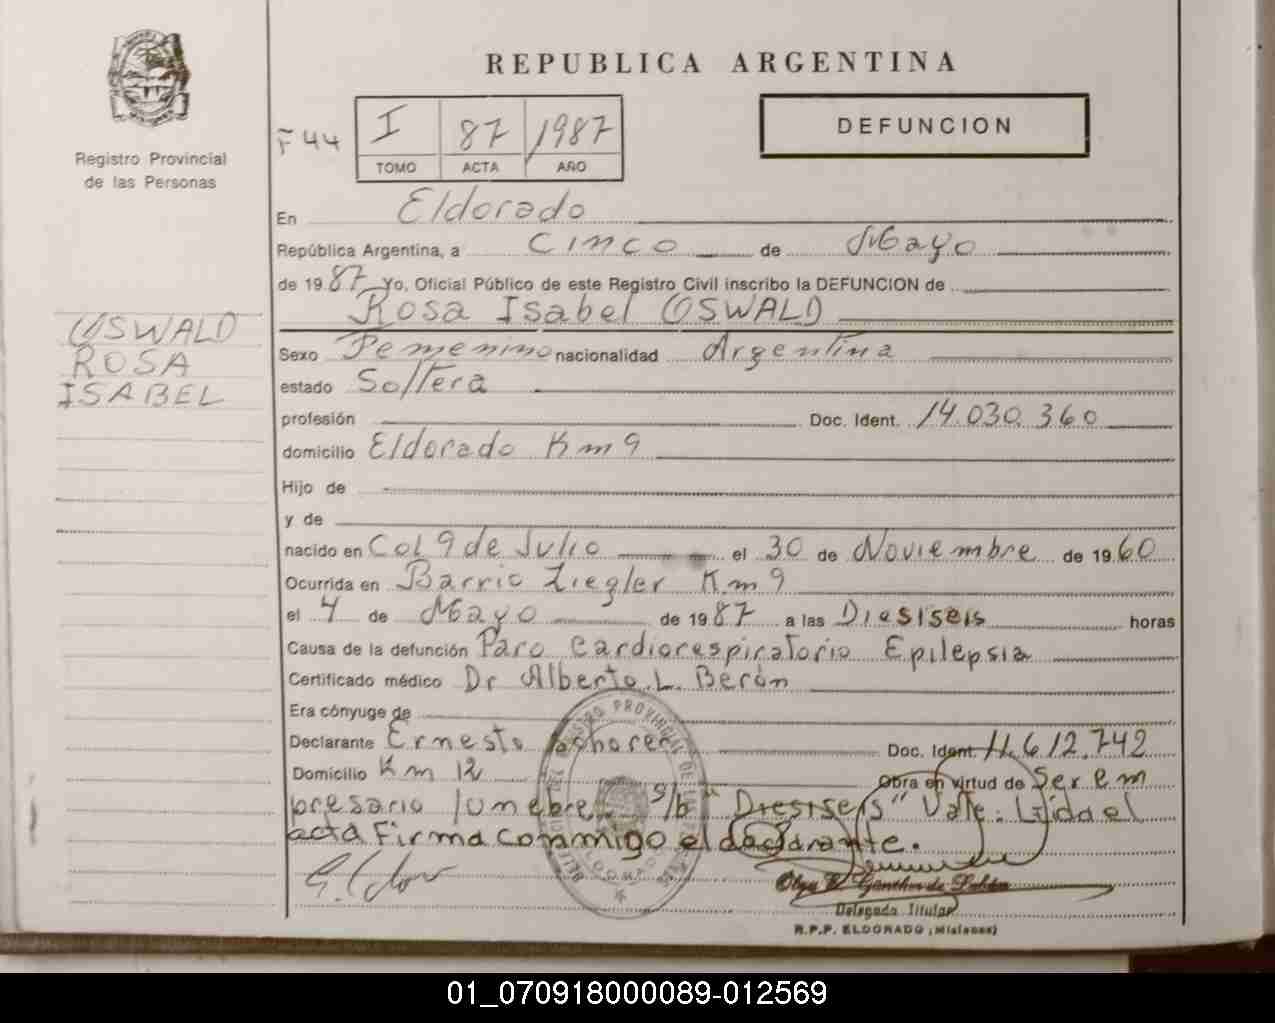 REPUBLICA ARGENTINA
Registro Provincial
de las Personas
DEFUNCION
F 44
I 87 1987
TOMO ACTA AÑO
OSWALD
ROSA
ISABEL
En Eldorado
República Argentina, a Cinco de Mayo
de 1987 Yo, Oficial Público de este Registro Civil inscribo la DEFUNCION de
Rosa Isabel OSWALD
Sexo Femenino nacionalidad Argentina
estado Soltera
profesión Doc. Ident. 14.030.360
domicilio Eldorado Km 9
Hijo de
y de
nacido en Col 9 de Julio el 30 de Noviembre de 1960
Ocurrida en Barrio Ziegler Km 9
el 4 de Mayo de 1987 a las Diesiseis horas
Causa de la defunción Paro cardiorespiratorio Epilepsia
Certificado médico Dr Alberto L. Berón
Era cónyuge de
Declarante Ernesto Doc. Ident. 11.612.742
Domicilio Km 12 Obra en virtud de Ser em
presario funebre s/b "Diesiseis" Vale: Leida el
acta Firma conmigo el declarante.
Delegada Titular
R.P.P. ELDORADO (Misiones)
01_070918000089-012569